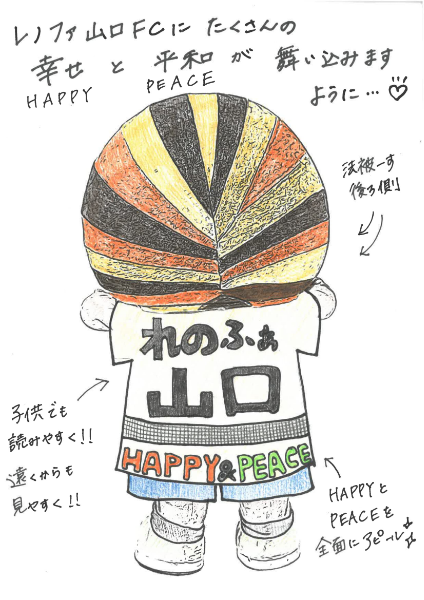 レノファ山口FCに たくさんの
幸せ と 平和 が 舞い込みます
HAPPY PEACE
ように…♡
法被ーす
後ろ側
れのふぁ
山口
子供でも
読みやすく!!
遠くからも
見やすく!!
HAPPY&PEACE
HAPPYと
PEACEを
全面にアピール♪